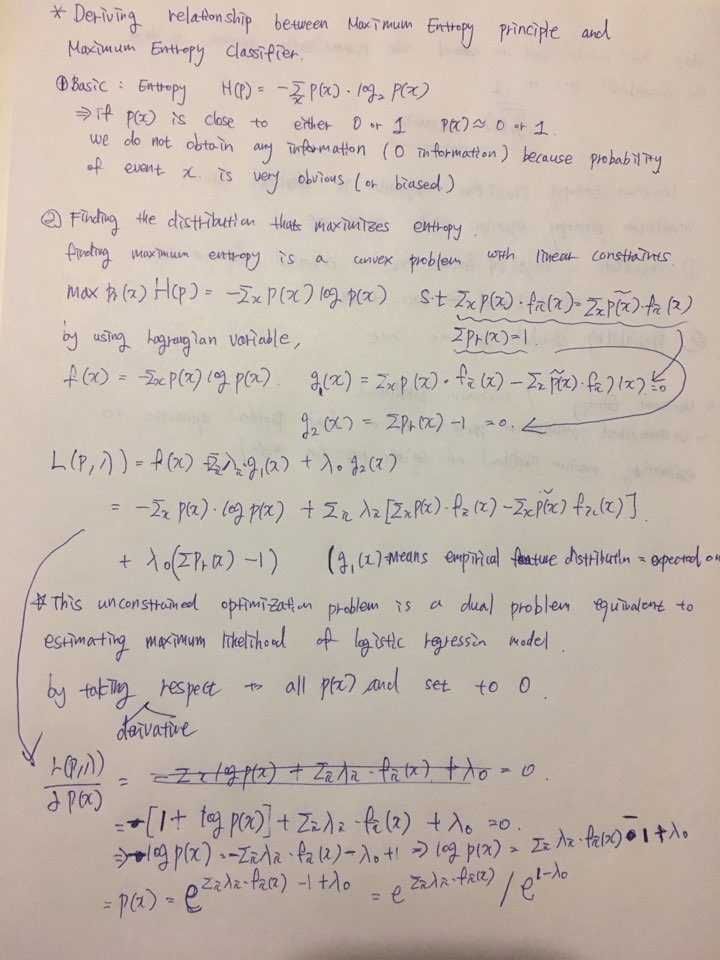 * Deriving relationship between Maximum Entropy principle and
Maximum Entropy Classifier.
① Basic : Entropy H(p) = -Σx p(x) · log₂ p(x)
⇒ if p(x) is close to either 0 or 1 p(x) ≈ 0 or 1.
we do not obtain any information (0 information) because probability
of event x. is very obvious (or biased.)
② Finding the distribution that maximizes entropy.
finding maximum entropy is a convex problem with linear constraints.
max pr(x) H(p) = -Σx p(x) log p(x) s.t Σx p(x) · fi(x) = Σx p̃(x) · fi(x)
by using Lagrangian variable, Σpr(x) = 1
f(x) = -Σx p(x) log p(x). g₁(x) = Σx p(x) · fi(x) - Σx p̃(x) · fi(x) = 0
g₂(x) = Σpr(x) - 1 = 0.
L(p, λ) = f(x) + Σi λi · g₁(x) + λ₀ g₂(x)
= -Σx p(x) · log p(x) + Σi λi [Σx p(x) · fi(x) - Σx p̃(x) fi(x)]
+ λ₀ (Σpr(x) - 1) (g₁(x) means empirical feature distributin = expected on
* This unconstrained optimization problem is a dual problem equivalent to
estimating maximum likelihood of logistic regressin model.
by taking respect to all p(x) and set to 0.
derivative
L(p,λ) / ∂p(x) = -Σx log p(x) + Σi λi · fi(x) + λ₀ = 0.
= -[1 + log p(x)] + Σi λi · fi(x) + λ₀ = 0.
⇒ -log p(x) = -Σi λi · fi(x) - λ₀ + 1 ⇒ log p(x) = Σi λi · fi(x) - 1 + λ₀
= p(x) = e^(Σi λi · fi(x) - 1 + λ₀) = e^(Σi λi · fi(x)) / e^(1-λ₀)